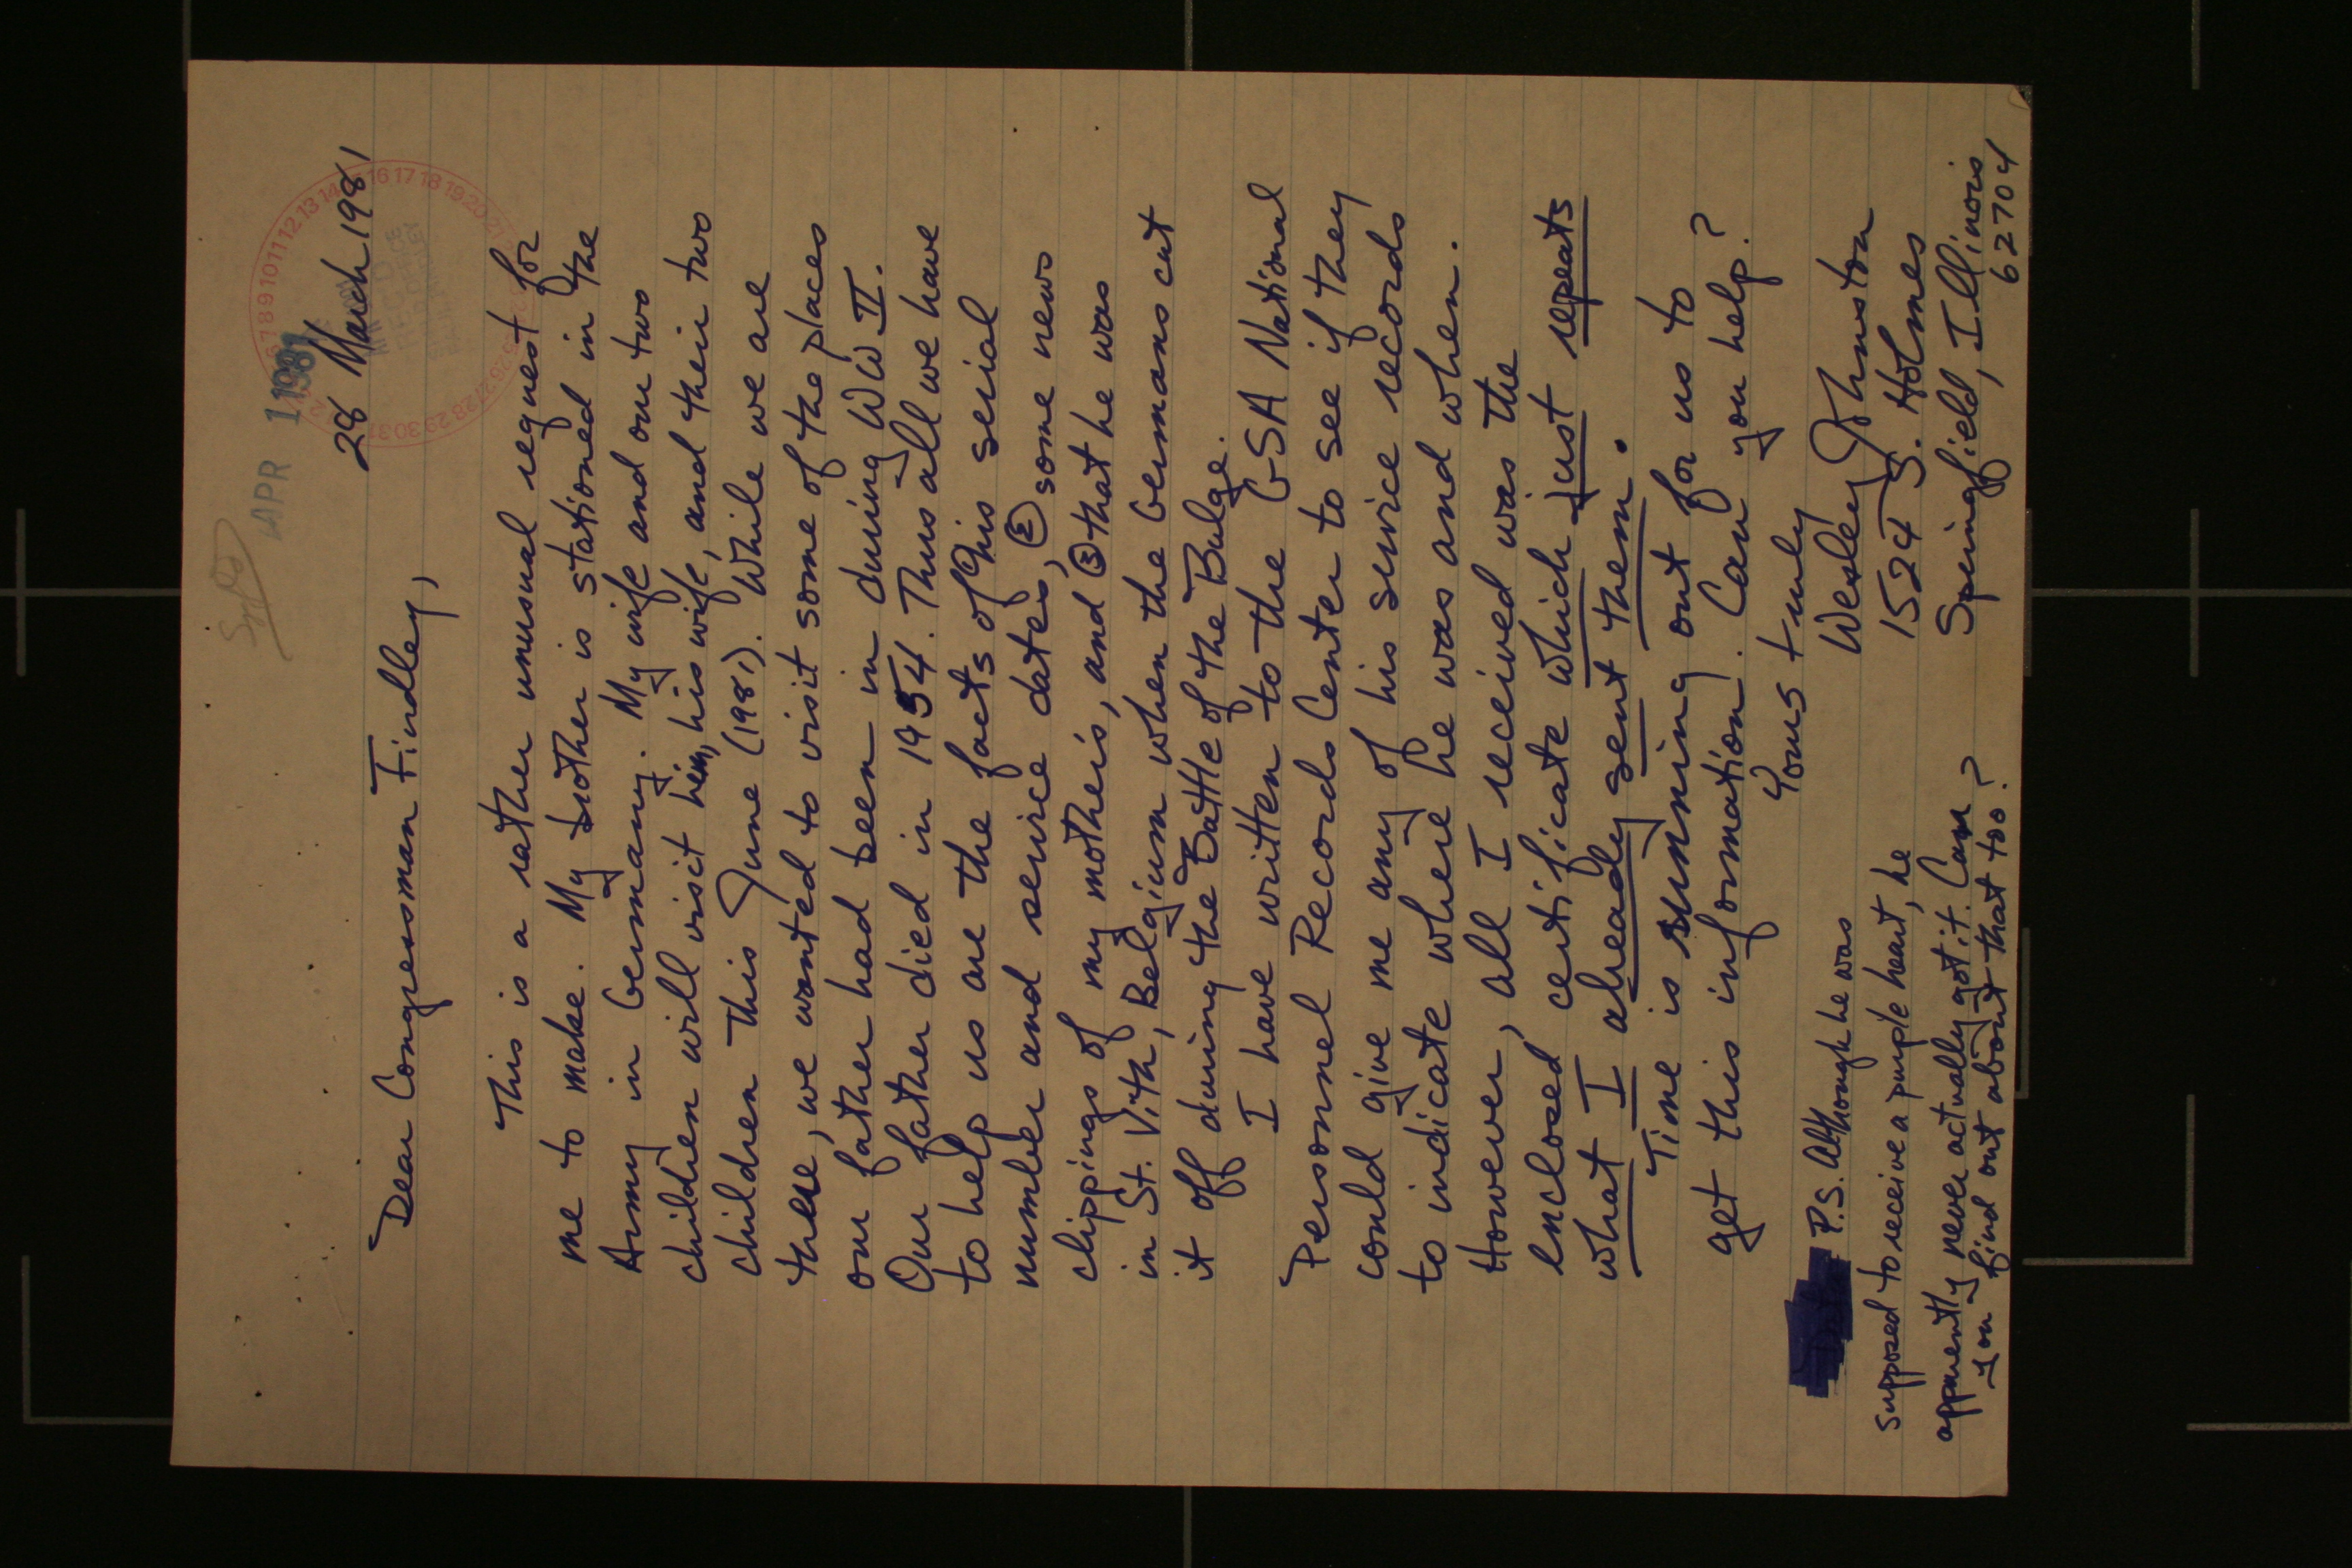 Spfld
APR 1 1981
6 7 8 9 10 11 12 13 14 15 16 17 18 19 20 21
25 26 27 28 29 30 31
28 March 1981
Dear Congressman Findley,
This is a rather unusual request for
me to make. My brother is stationed in the
Army in Germany. My wife and our two
children will visit him, his wife, and their two
children this June (1981). While we are
there, we wanted to visit some of the places
our father had been in during WW II.
Our father died in 1954. Thus all we have
to help us are the facts of ① his serial
number and service dates, ② some news
clippings of my mother's, and ③ that he was
in St. Vith, Belgium when the Germans cut
it off during the Battle of the Bulge.
I have written to the GSA National
Personnel Records Center to see if they
could give me any of his service records
to indicate where he was and when.
However, all I received was the
enclosed certificate which just repeats
what I already sent them.
Time is running out for us to
get this information. Can you help?
Yours truly
Wesley Johnston
1524 S. Holmes
Springfield, Illinois
62704
P.S. Although he was
supposed to receive a purple heart, he
apparently never actually got it. Can
you find out about that too?